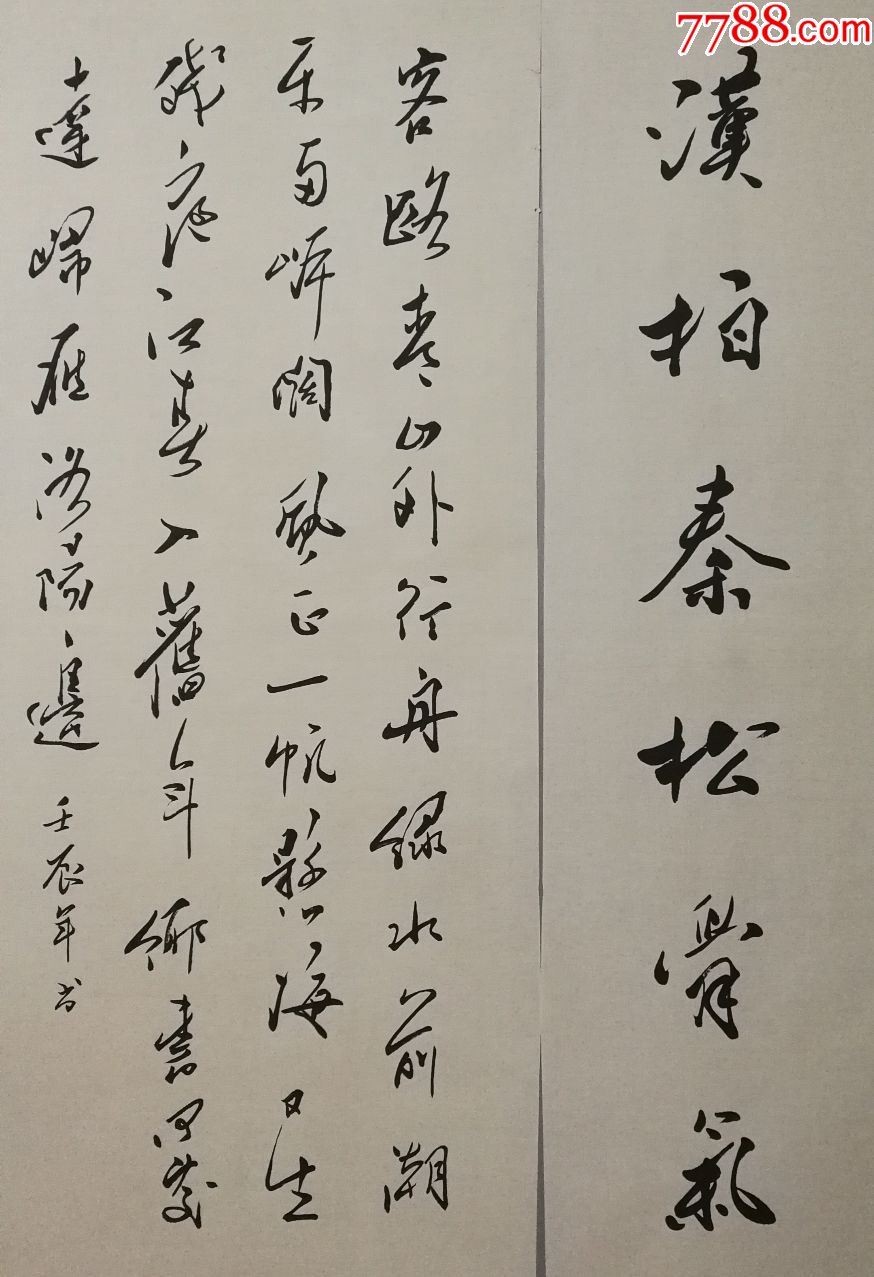 7788.com
漢柏秦松骨氣
客路青山外行舟綠水前潮
平兩岸闊風正一帆懸海日生
殘夜江春入舊年鄉書何處
達歸雁洛陽邊壬辰年書